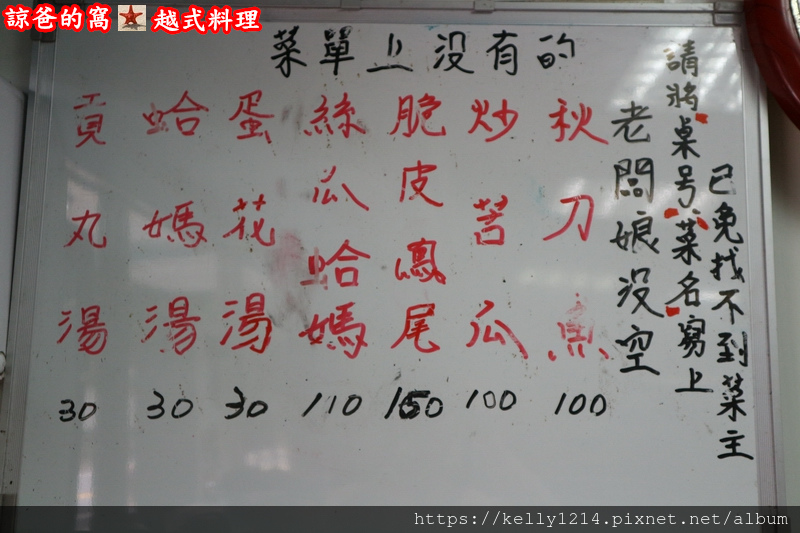 諒爸的窩 越式料理
菜單上没有的
請將桌号、菜名寫上
已免找不到菜主
老闆娘没空
秋刀魚 100
炒苦瓜 100
脆皮鳳尾 150
絲瓜哈媽 110
蛋花湯 30
哈媽湯 30
貢丸湯 30
https://kelly1214.pixnet.net/album